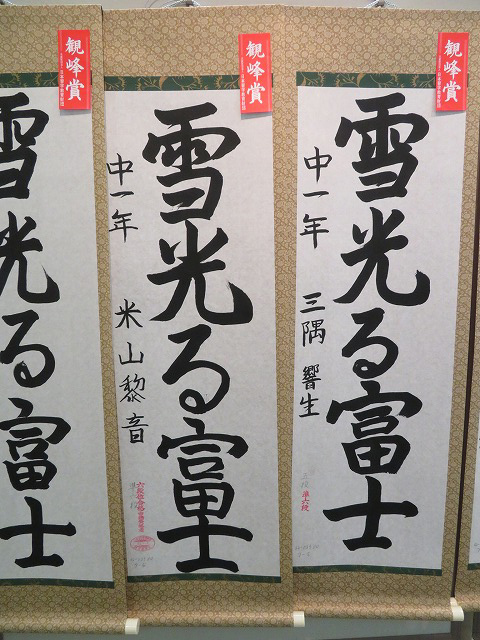 観峰賞
雪光る富士
中一年 三隅響生
準六段
観峰賞
雪光る富士
中一年 米山黎音
観峰賞
雪光る富士